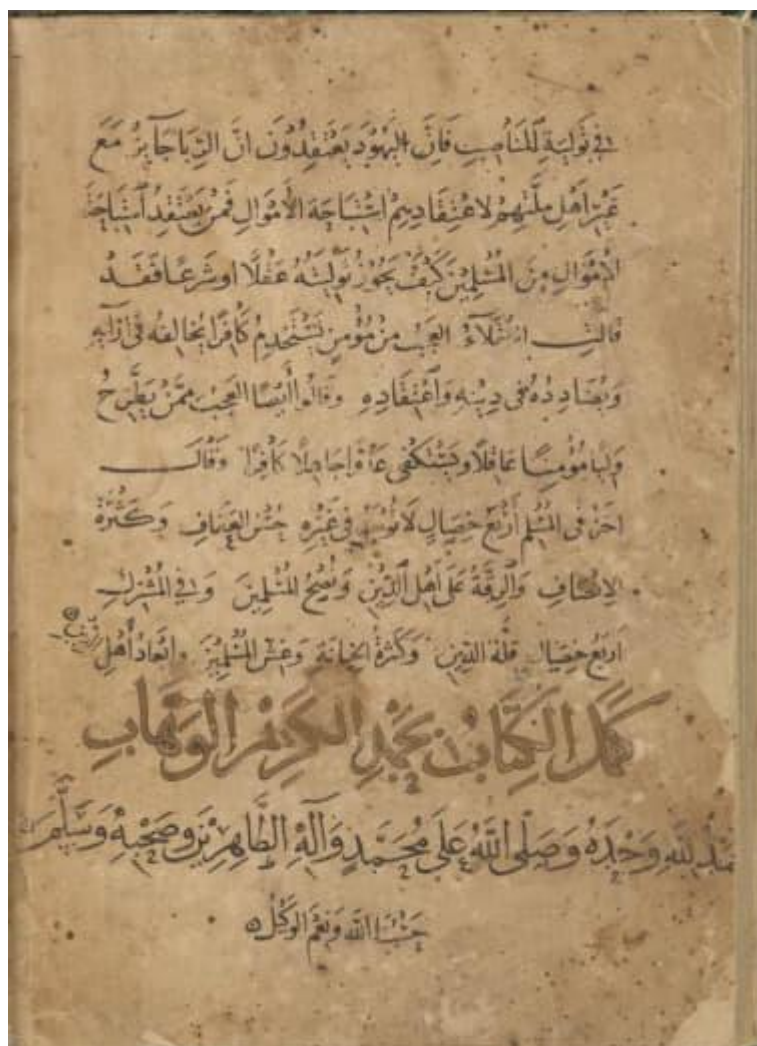 في تولية المناصب فان اليهود يعتقدون ان الربا جايز مع
غير اهل ملتهم لاعتقادهم استباحة الاموال فمن يعتقد استباحة
الاموال من المسلمين كيف يجوز توليته عقلا او شرعا فقد
قالت العقلاء العجب من مؤمن يستخدم كافرا يخالفه في رايه
ويضادده في دينه واعتقاده وقالوا أيضا العجب ممن يطرح
وليا مؤمنا عاقلا ويستكفي عدوا جاهلا كافرا وقالـــ
اخر في المسلم أربع خصال لا توجد في غيره حسن العفاف وكثرة
الانصاف والرقة على أهل الدين ونصح المسلمين وفي المشرك
اربع خصال قلة الدين وكثرة الخيانة وغش المسلمين وابعاد أهل الدين
كمل الكتاب بحمد الكريم الوهاب
لله وحده وصلى الله على محمد وآله الطاهرين وصحبه وسلم
حسبنا الله ونعم الوكيل